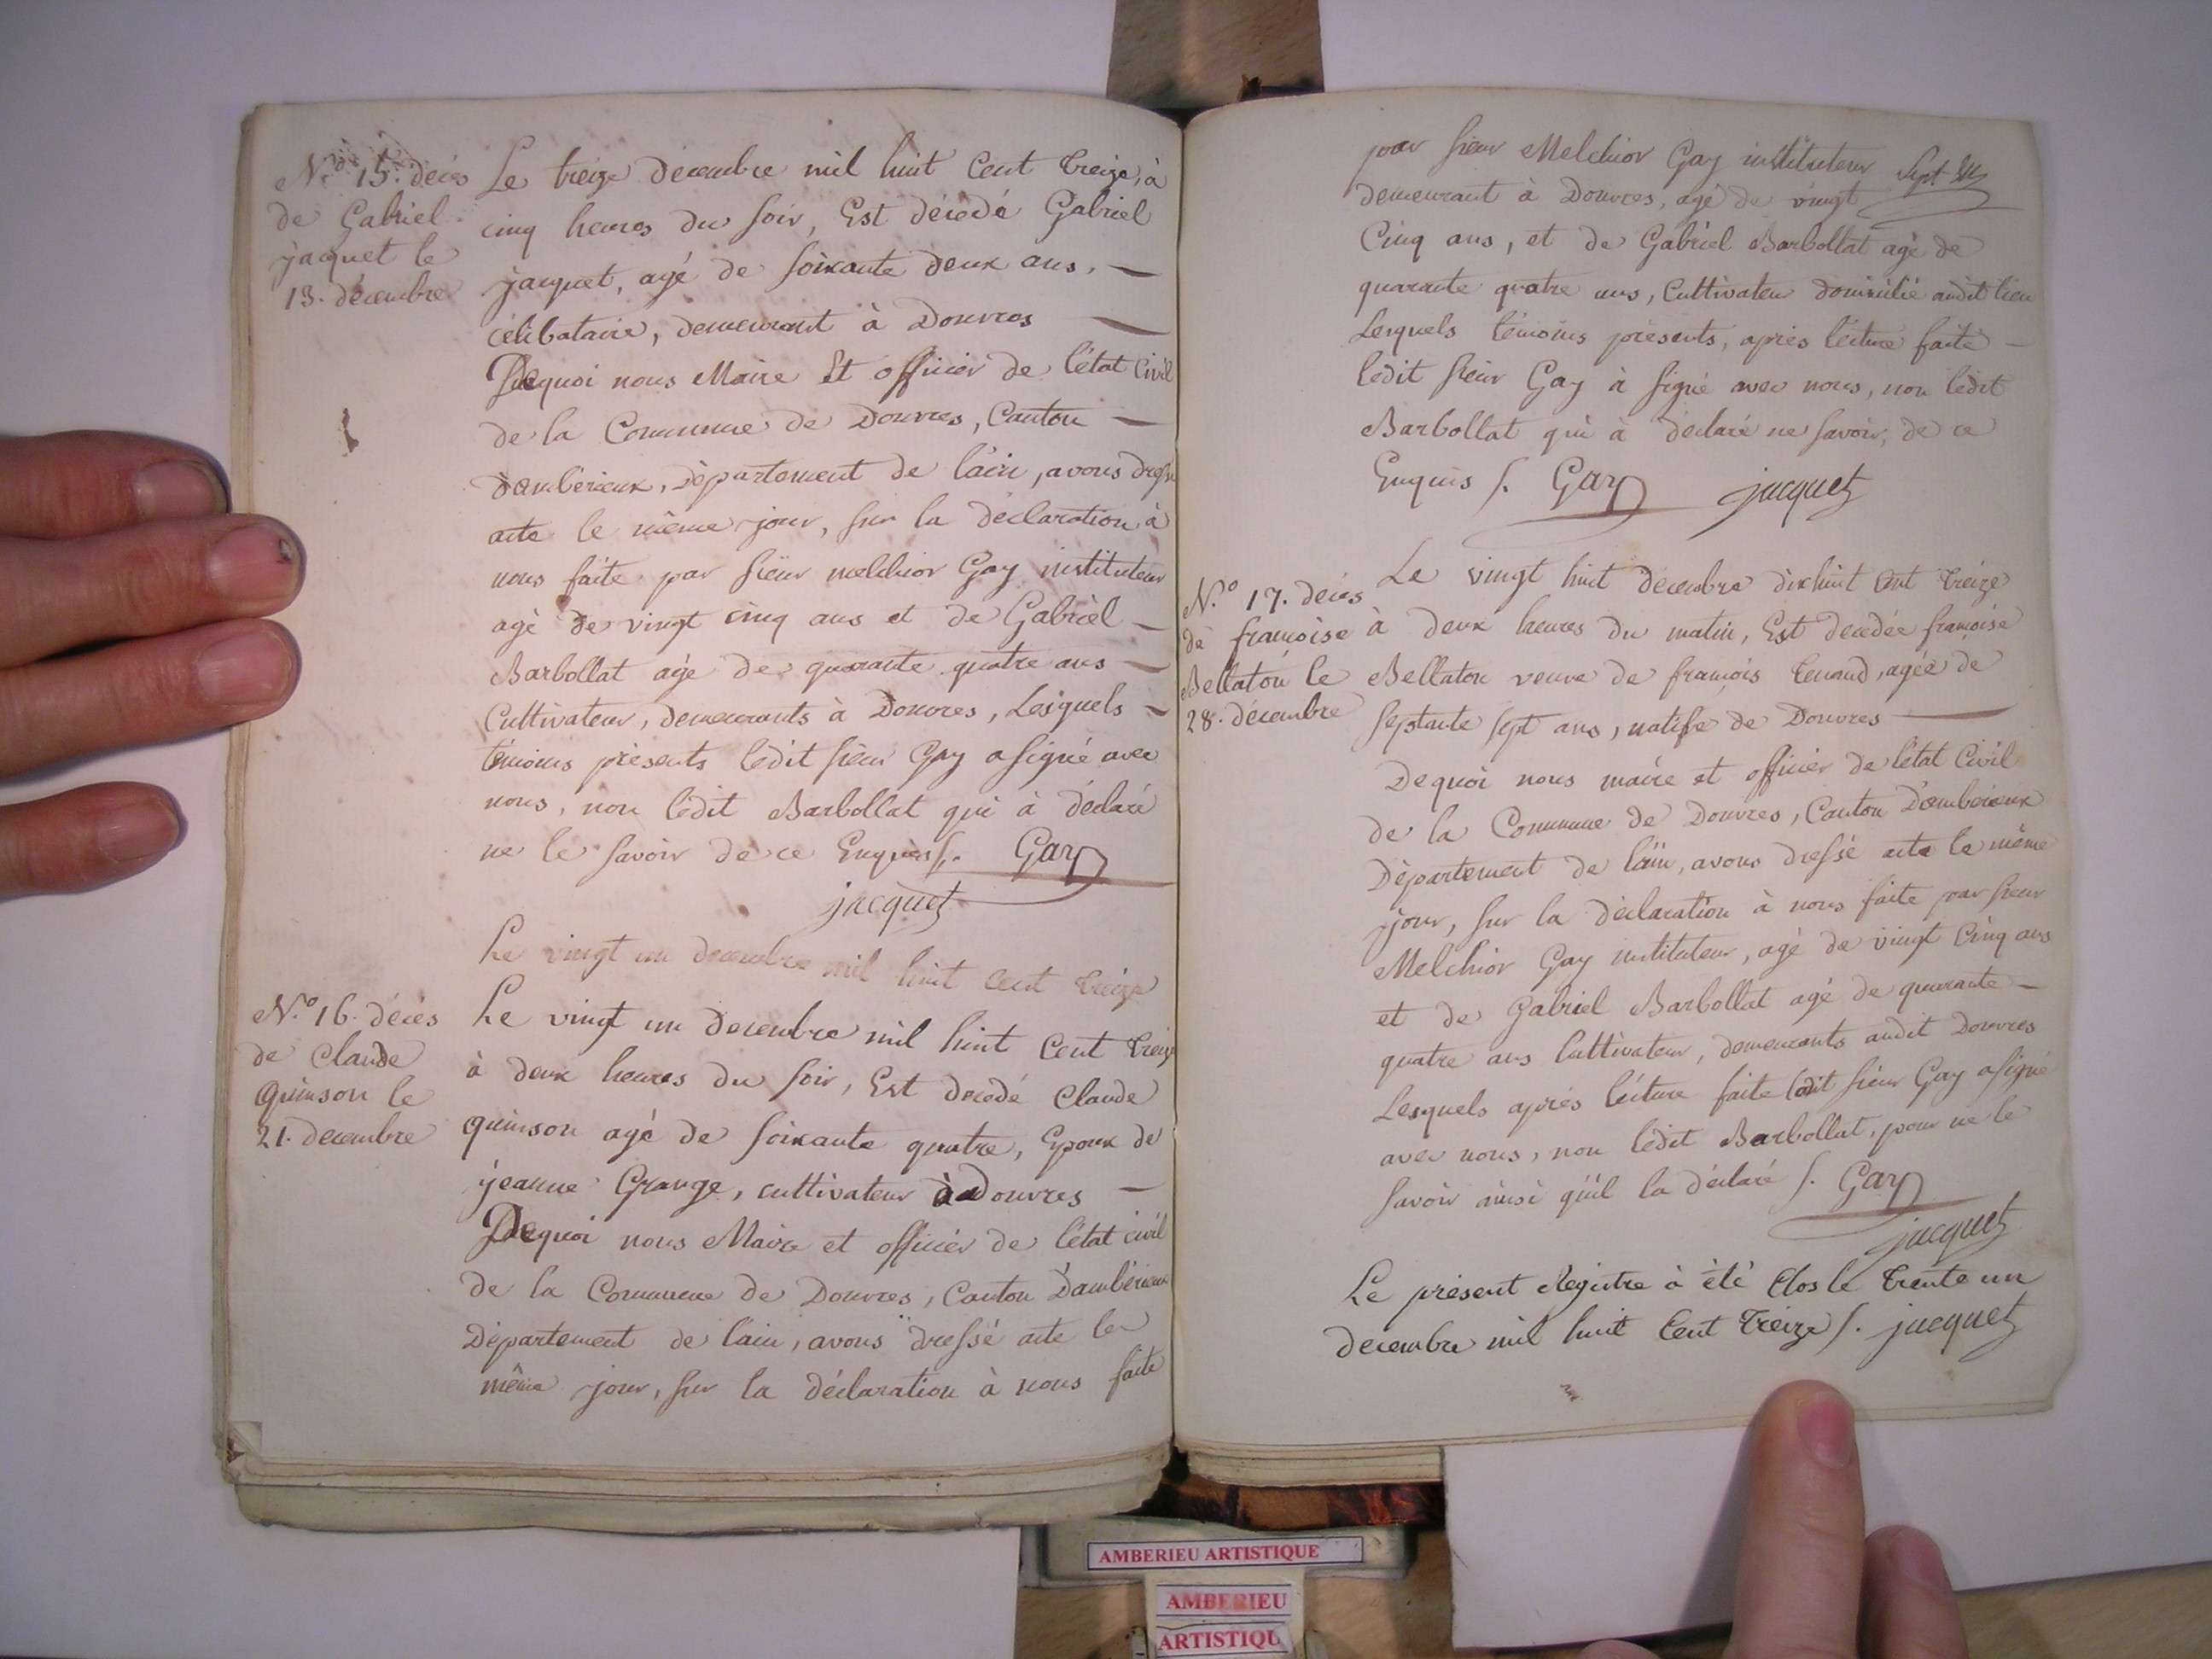 N.° 15. décès
de Gabriel
jacquet le
13. décembre
Le treize decembre mil huit Cent treize, à
cinq heures du soir, Est décedé Gabriel
jacquet, agé de soixante deux ans, —
célibataire, demeurant à Douvres —
Dequoi nous Maire Et officier de l'état Civil
de la Commune de Douvres, Canton —
d'ambérieux, département de l'ain, avons dressé
acte le même jour, sur la déclaration à
nous faite par sieur melchior Gay instituteur
agé de vingt cinq ans et de Gabriel —
Barbollat agé de quarante quatre ans —
Cultivateur, demeurants à Douvres, Lesquels —
témoins présents ledit sieur Gay a signé avec
nous, non ledit Barbollat qui à déclaré
ne le savoir de ce Enquis /. Gay
jacquet
Le vingt un decembre mil huit cent treize
N.° 16. décès
de Claude
quinson le
21. decembre
Le vingt un decembre mil huit Cent treize
à deux heures du soir, Est decedé Claude
quinson agé de soixante quatre, Epoux de
jeanne Grange, cultivateur à Douvres —
Dequoi nous Maire et officier de l'état civil
de la Commune de Douvres, Canton D'ambérieux
Département de l'ain, avons dressé acte le
même jour, sur la déclaration à nous faite
par sieur Melchior Gay instituteur Sept
demeurant à Douvres, agé de vingt
Cinq ans, et de Gabriel Barbollat agé de
quarante quatre ans, Cultivateur domicilié audit lieu
Lesquels témoins présents, après lécture faite —
ledit sieur Gay à signé avec nous, non ledit
Barbollat qui à déclaré ne savoir, de ce
Enquis /. Gay jacquet
N.° 17. décès
de françoise
Bellaton le
28. décembre
Le vingt huit decembre dixhuit cent treize
à deux heures du matin, Est decedée françoise
Bellaton veuve de françois tenand, agée de
septante sept ans, native de Douvres —
Dequoi nous maire et officier de l'état Civil
de la Commune de Douvres, Canton D'amberieux
Département de l'ain, avons dressé acte le même
jour, sur la déclaration à nous faite par sieur
Melchior Gay instituteur, agé de vingt Cinq ans
et de Gabriel Barbollat agé de quarante —
quatre ans Cultivateur, demeurants audit Douvres
Lesquels après lécture faite ledit sieur Gay a signé
avec nous, non ledit Barbollat, pour ne le
savoir ainsi qu'il la déclaré /. Gay
jacquet
Le présent Registre à été Clos le trente un
decembre mil huit Cent treize /. jacquet
AMBERIEU ARTISTIQUE
AMBERIEU
ARTISTIQU